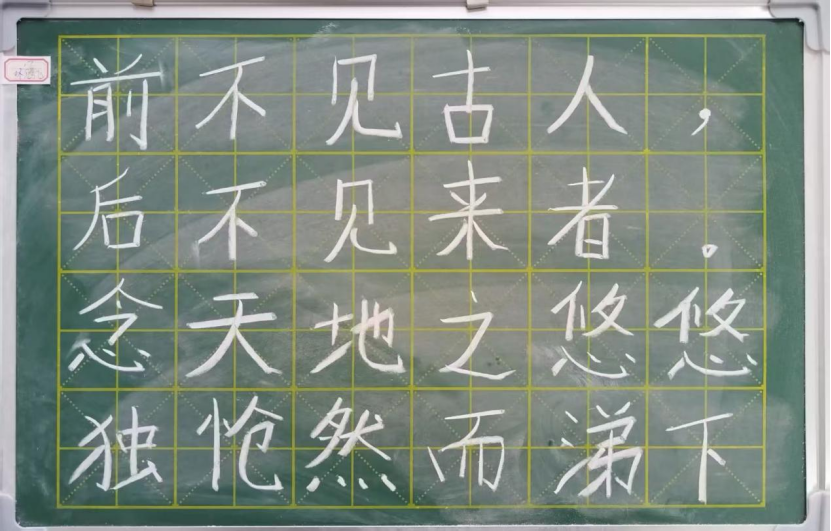 前不见古人，
后不见来者。
念天地之悠悠
独怆然而涕下